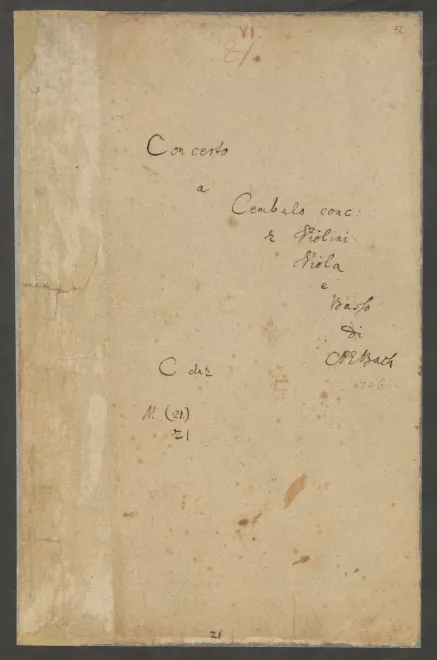 VI.
32
21.
Concerto
a
Cembalo conc:
2 Violini
Viola
e
Basso
di
CPEBach
C dur
1746
N. (21)
21
21